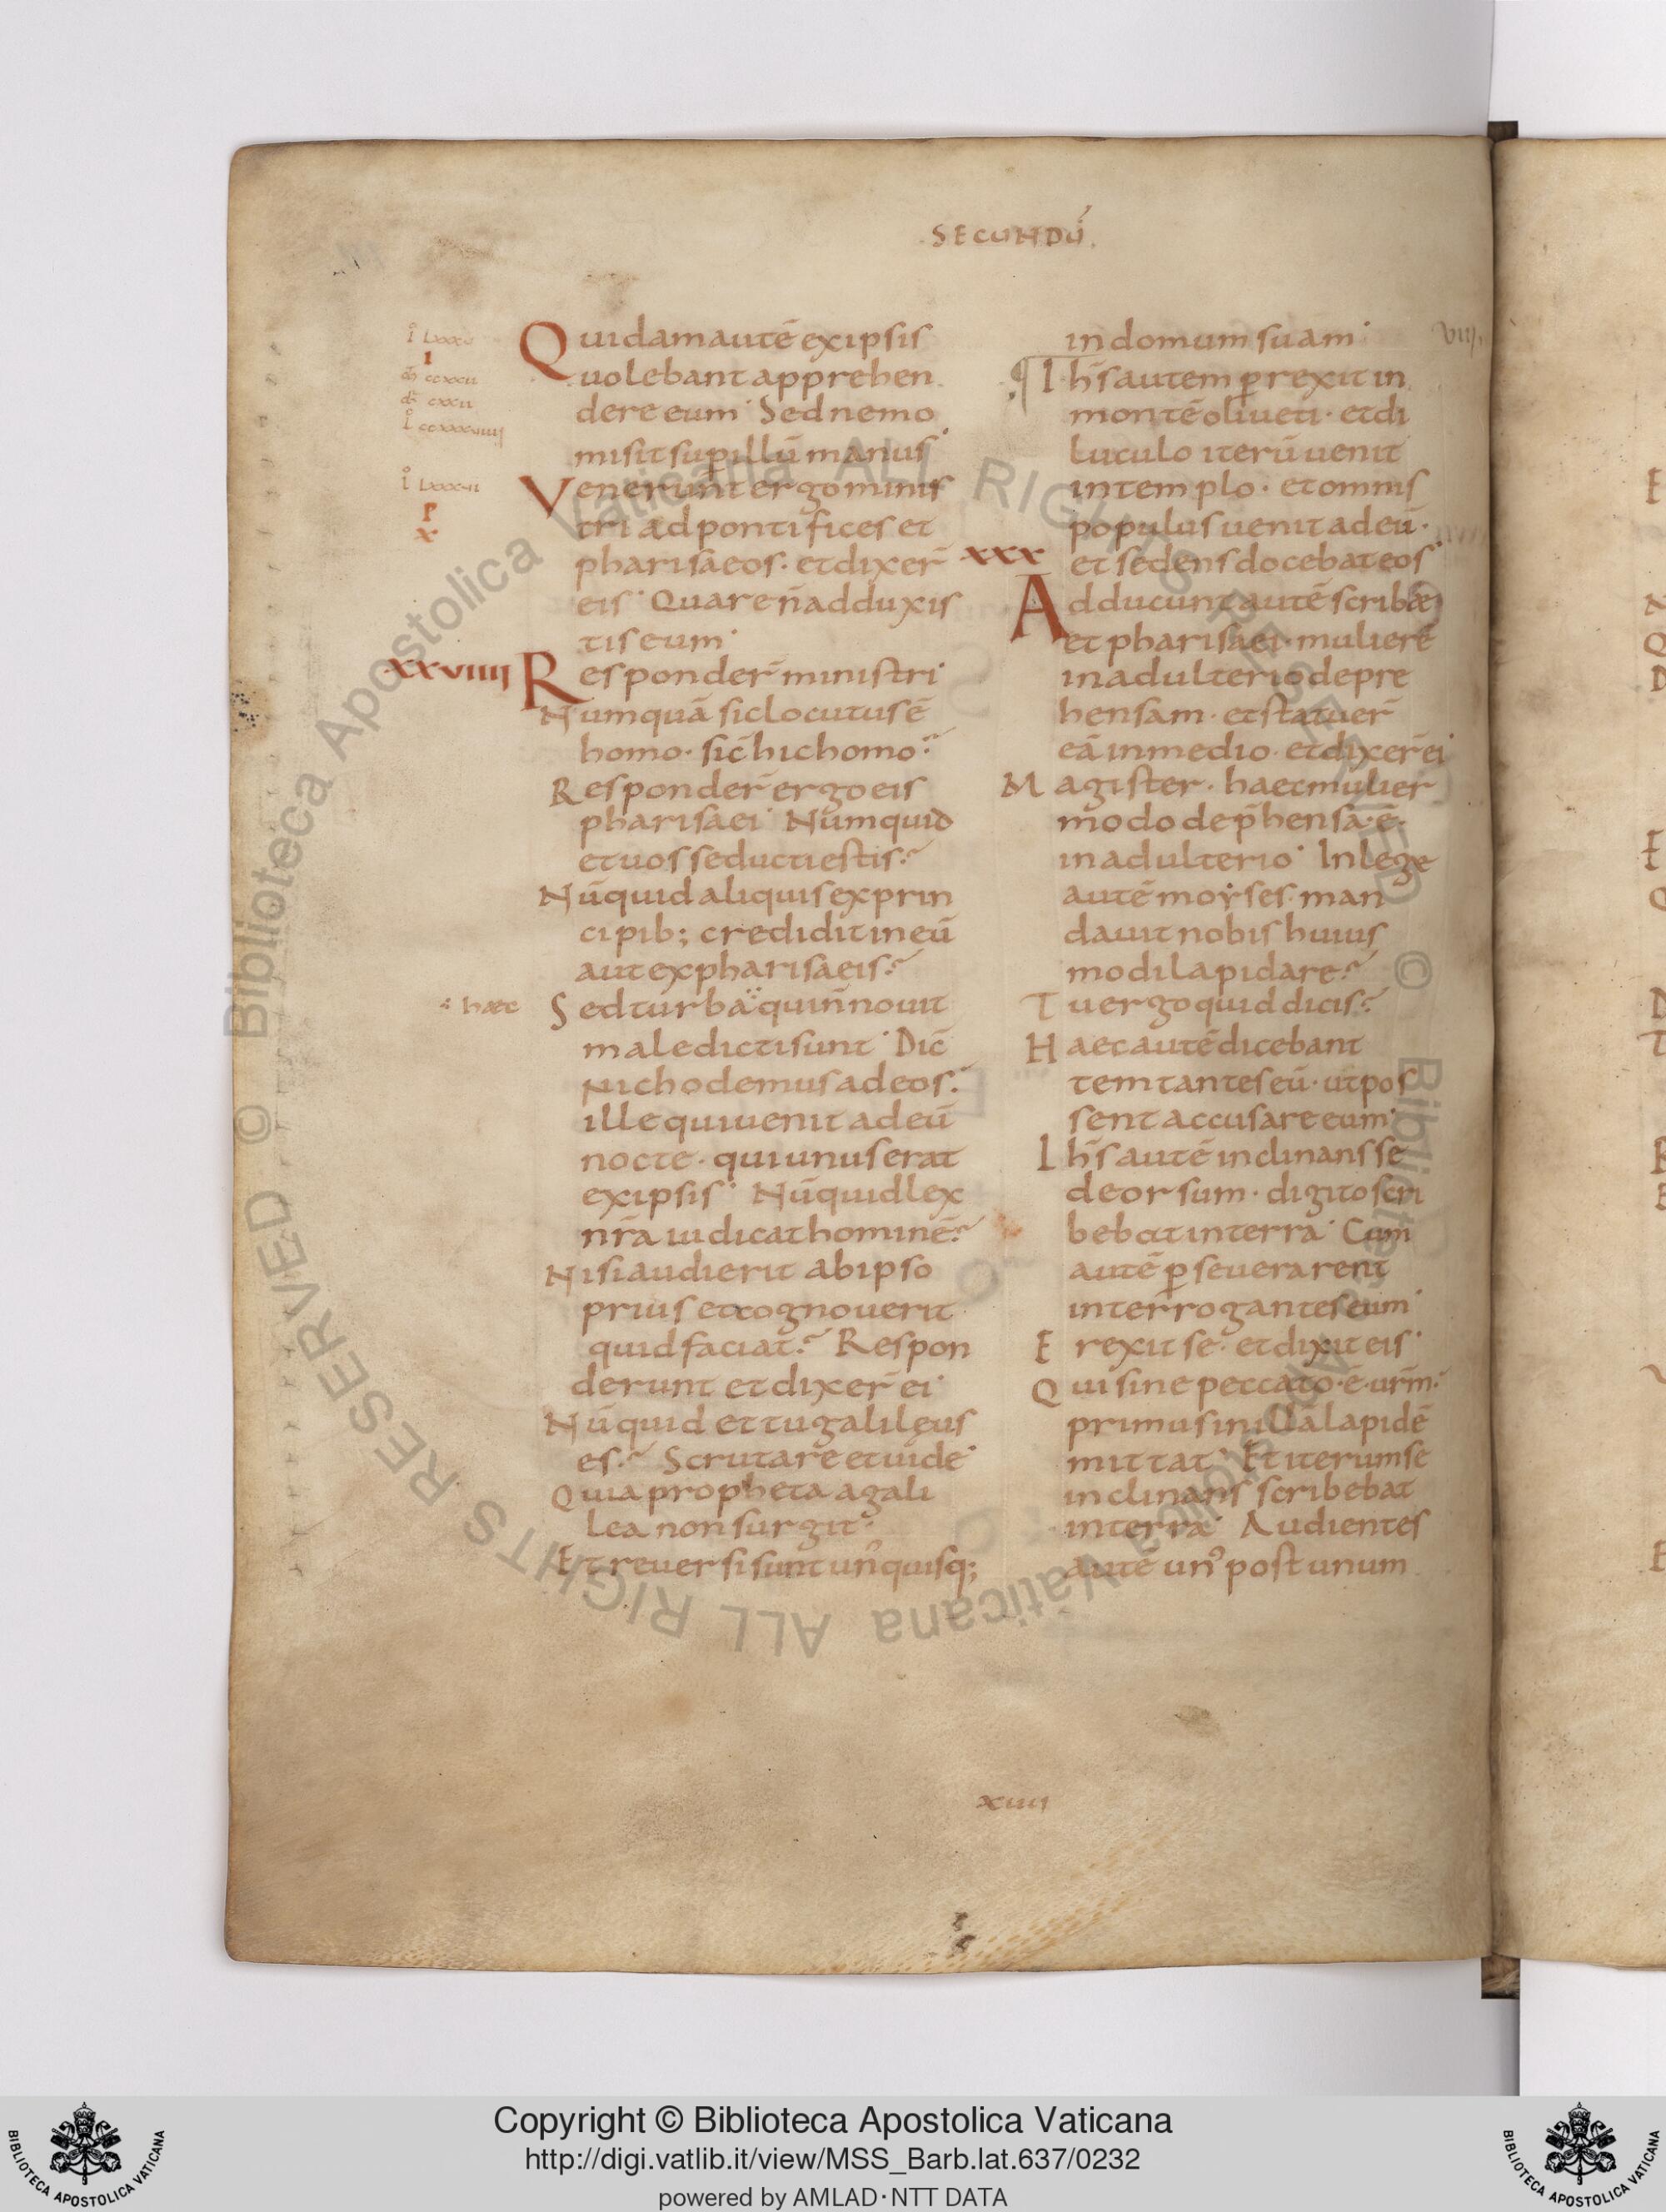 SECUNDŪ
Quidam autē ex ipsis
uolebant apprehen
dere eum· Sed nemo
misit sup̄ illū manus·
Venerunt ergo minis
tri ad pontifices et
pharisaeos· et dixer̄
eis· Quare n̄ adduxis
tis eum·
XXVIIII Responder̄ ministri·
Numquā sic locutus ē
homo· sic hic homo?
Responder̄ ergo eis
pharisaei· Numquid
et uos seducti estis?
Nūquid aliquis ex prin
cipib; credidit in eū
aut ex pharisaeis?
haec Sed turba qui n̄ nouit
maledicti sunt· Dic̄
Nichodemus ad eos·
ille qui uenit ad eū
nocte· qui unus erat
ex ipsis· Nūquid lex
nr̄a iudicat hominē?
Nisi audierit ab ipso
prius et cognouerit
quid faciat? Respon
derunt et dixer̄ ei·
Nūquid et tu galilęus
es? Scrutare et uide·
Quia propheta a gali
lea non surgit·
Et reuersi sunt un'quisq;
in domum suam·
VIII
Ihs̄ autem p̄rexit in
montē oliueti· et di
luculo iterū uenit
in templo· et omnis
populus uenit ad eū·
XXX et sedens docebat eos·
Adducunt autē scribae
et pharisaei· mulierē
in adulterio depre
hensam· et statuer̄
eā in medio· et dixer̄ ei·
Magister· haec mulier
modo dep̄hensā·ē·
in adulterio· In lege
autē moyses man
dauit nobis huius
modi lapidare?
Tu ergo quid dicis?
Haec autē dicebant
temtantes eū· ut pos
sent accusare eum·
Ihs̄ autē inclinans se
deorsum· digito scri
bebat in terra· Cum
autē p̄seuerarent
interrogantes eum·
Erexit se· et dixit eis·
Qui sine peccato·ē·ur̄m·
primus in illā lapidē
mittat· Et iterum se
inclinans scribebat
in terra· Audientes
autē un' post unum
XIIII
Copyright © Biblioteca Apostolica Vaticana
http://digi.vatlib.it/view/MSS_Barb.lat.637/0232
powered by AMLAD·NTT DATA
BIBLIOTECA APOSTOLICA VATICANA
BIBLIOTECA APOSTOLICA VATICANA
© Biblioteca Apostolica Vaticana ALL RIGHTS RESERVED © Biblioteca Apostolica Vaticana ALL RIGHTS RESERVED